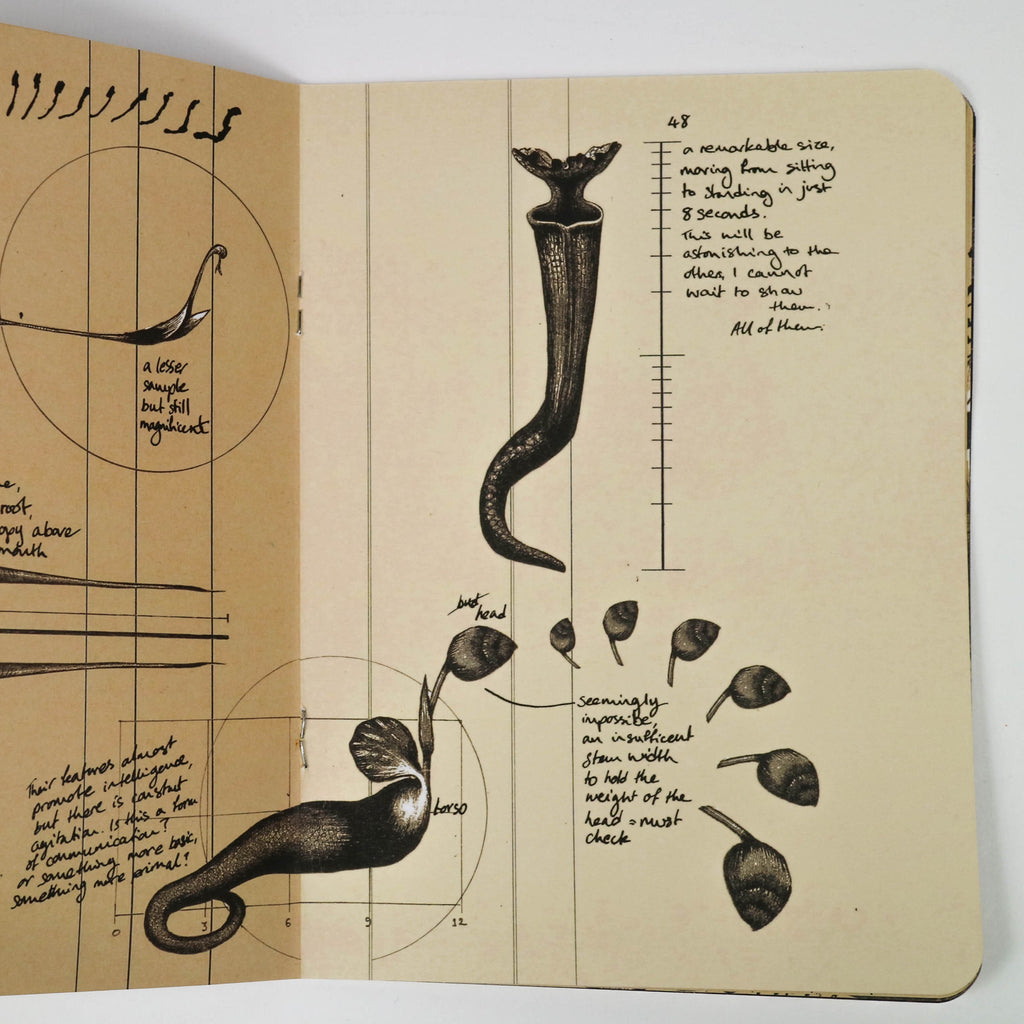 a lesser
sample
but still
magnificent
root,
above
mouth
Their features almost
promote intelligence,
but there is constant
agitation. Is this a form
of communication?
or something more basic,
something more primal?
0 3 6 9 12
48
a remarkable size,
moving from sitting
to standing in just
8 seconds.
This will be
astonishing to the
others, I cannot
wait to show
them.
All of them.
head
torso
seemingly
impossible,
an insufficient
stem width
to hold the
weight of the
head = must
check